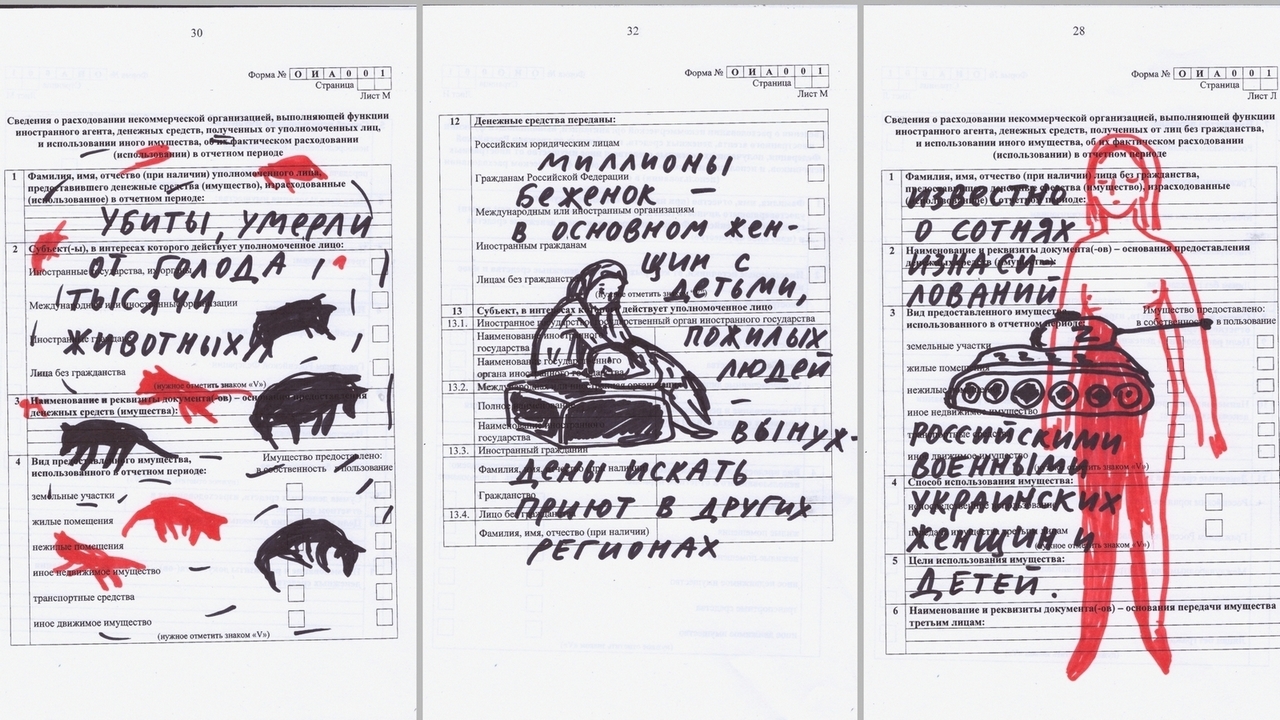 30
Форма № О И А 0 0 1
Страница
Лист М
Сведения о расходовании некоммерческой организацией, выполняющей функции
иностранного агента, денежных средств, полученных от уполномоченных лиц,
и использовании иного имущества, об их фактическом расходовании
(использовании) в отчетном периоде
1 Фамилия, имя, отчество (при наличии) уполномоченного лица,
предоставившего денежные средства (имущество), израсходованные
(использованное) в отчетном периоде:
УБИТЫ, УМЕРЛИ
2 Субъект(-ы), в интересах которого действует уполномоченное лицо:
ОТ ГОЛОДА
Иностранные государства, их органы
ТЫСЯЧИ
Международные или иностранные организации
ЖИВОТНЫХ
Иностранные граждане
Лица без гражданства
(нужное отметить знаком «V»)
3 Наименование и реквизиты документа(-ов) – основания
денежных средств (имущества):
4 Вид предоставленного имущества,
использованного в отчетном периоде:
Имущество предоставлено:
в собственность в пользование
земельные участки
жилые помещения
нежилые помещения
иное недвижимое имущество
транспортные средства
иное движимое имущество
(нужное отметить знаком «V»)
32
Форма № О И А 0 0 1
Страница
Лист М
12 Денежные средства переданы:
Российским юридическим лицам
МИЛЛИОНЫ
Гражданам Российской Федерации
БЕЖЕНОК —
Международным или иностранным организациям
В ОСНОВНОМ ЖЕН-
Иностранным гражданам
ЩИН С
Лицам без гражданства
(нужное отметить знаком «V»)
ДЕТЬМИ,
13 Субъект, в интересах которого действует уполномоченное лицо
13.1. Иностранное государство, государственный орган иностранного государства
Наименование иностранного
государства
ПОЖИЛЫХ
Наименование государственного
органа иностранного государства
ЛЮДЕЙ
13.2. Международная или иностранная организация
—
Полное
Наименование иностранного
государства
ВЫНУЖ-
13.3. Иностранный гражданин
Фамилия, имя, отчество (при наличии)
ДЕНЫ ИСКАТЬ
Гражданство
ПРИЮТ В ДРУГИХ
13.4. Лицо без гражданства
Фамилия, имя, отчество (при наличии)
РЕГИОНАХ
28
Форма № О И А 0 0 1
Страница
Лист Л
Сведения о расходовании некоммерческой организацией, выполняющей функции
иностранного агента, денежных средств, полученных от лиц без гражданства,
и использовании иного имущества, об их фактическом расходовании
(использовании) в отчетном периоде
1 Фамилия, имя, отчество (при наличии) лица без гражданства,
предоставившего денежные средства (имущество), израсходованные
(использованное) в отчетном периоде:
ИЗВЕСТНО
О СОТНЯХ
2 Наименование и реквизиты документа(-ов) – основания предоставления
денежных средств (имущества):
ИЗНАСИ-
ЛОВАНИЙ
3 Вид предоставленного имущества,
использованного в отчетном периоде:
Имущество предоставлено:
в собственность в пользование
земельные участки
жилые помещения
нежилые помещения
иное недвижимое имущество
транспортные средства
РОССИЙСКИМИ
иное движимое имущество
ВОЕННЫМИ
(нужное отметить знаком «V»)
4 Способ использования имущества:
УКРАИНСКИХ
непосредственное использование
ЖЕНЩИН И
передача имущества третьим лицам
(нужное отметить знаком «V»)
5 Цели использования имущества:
ДЕТЕЙ.
6 Наименование и реквизиты документа(-ов) – основания передачи имущества
третьим лицам: